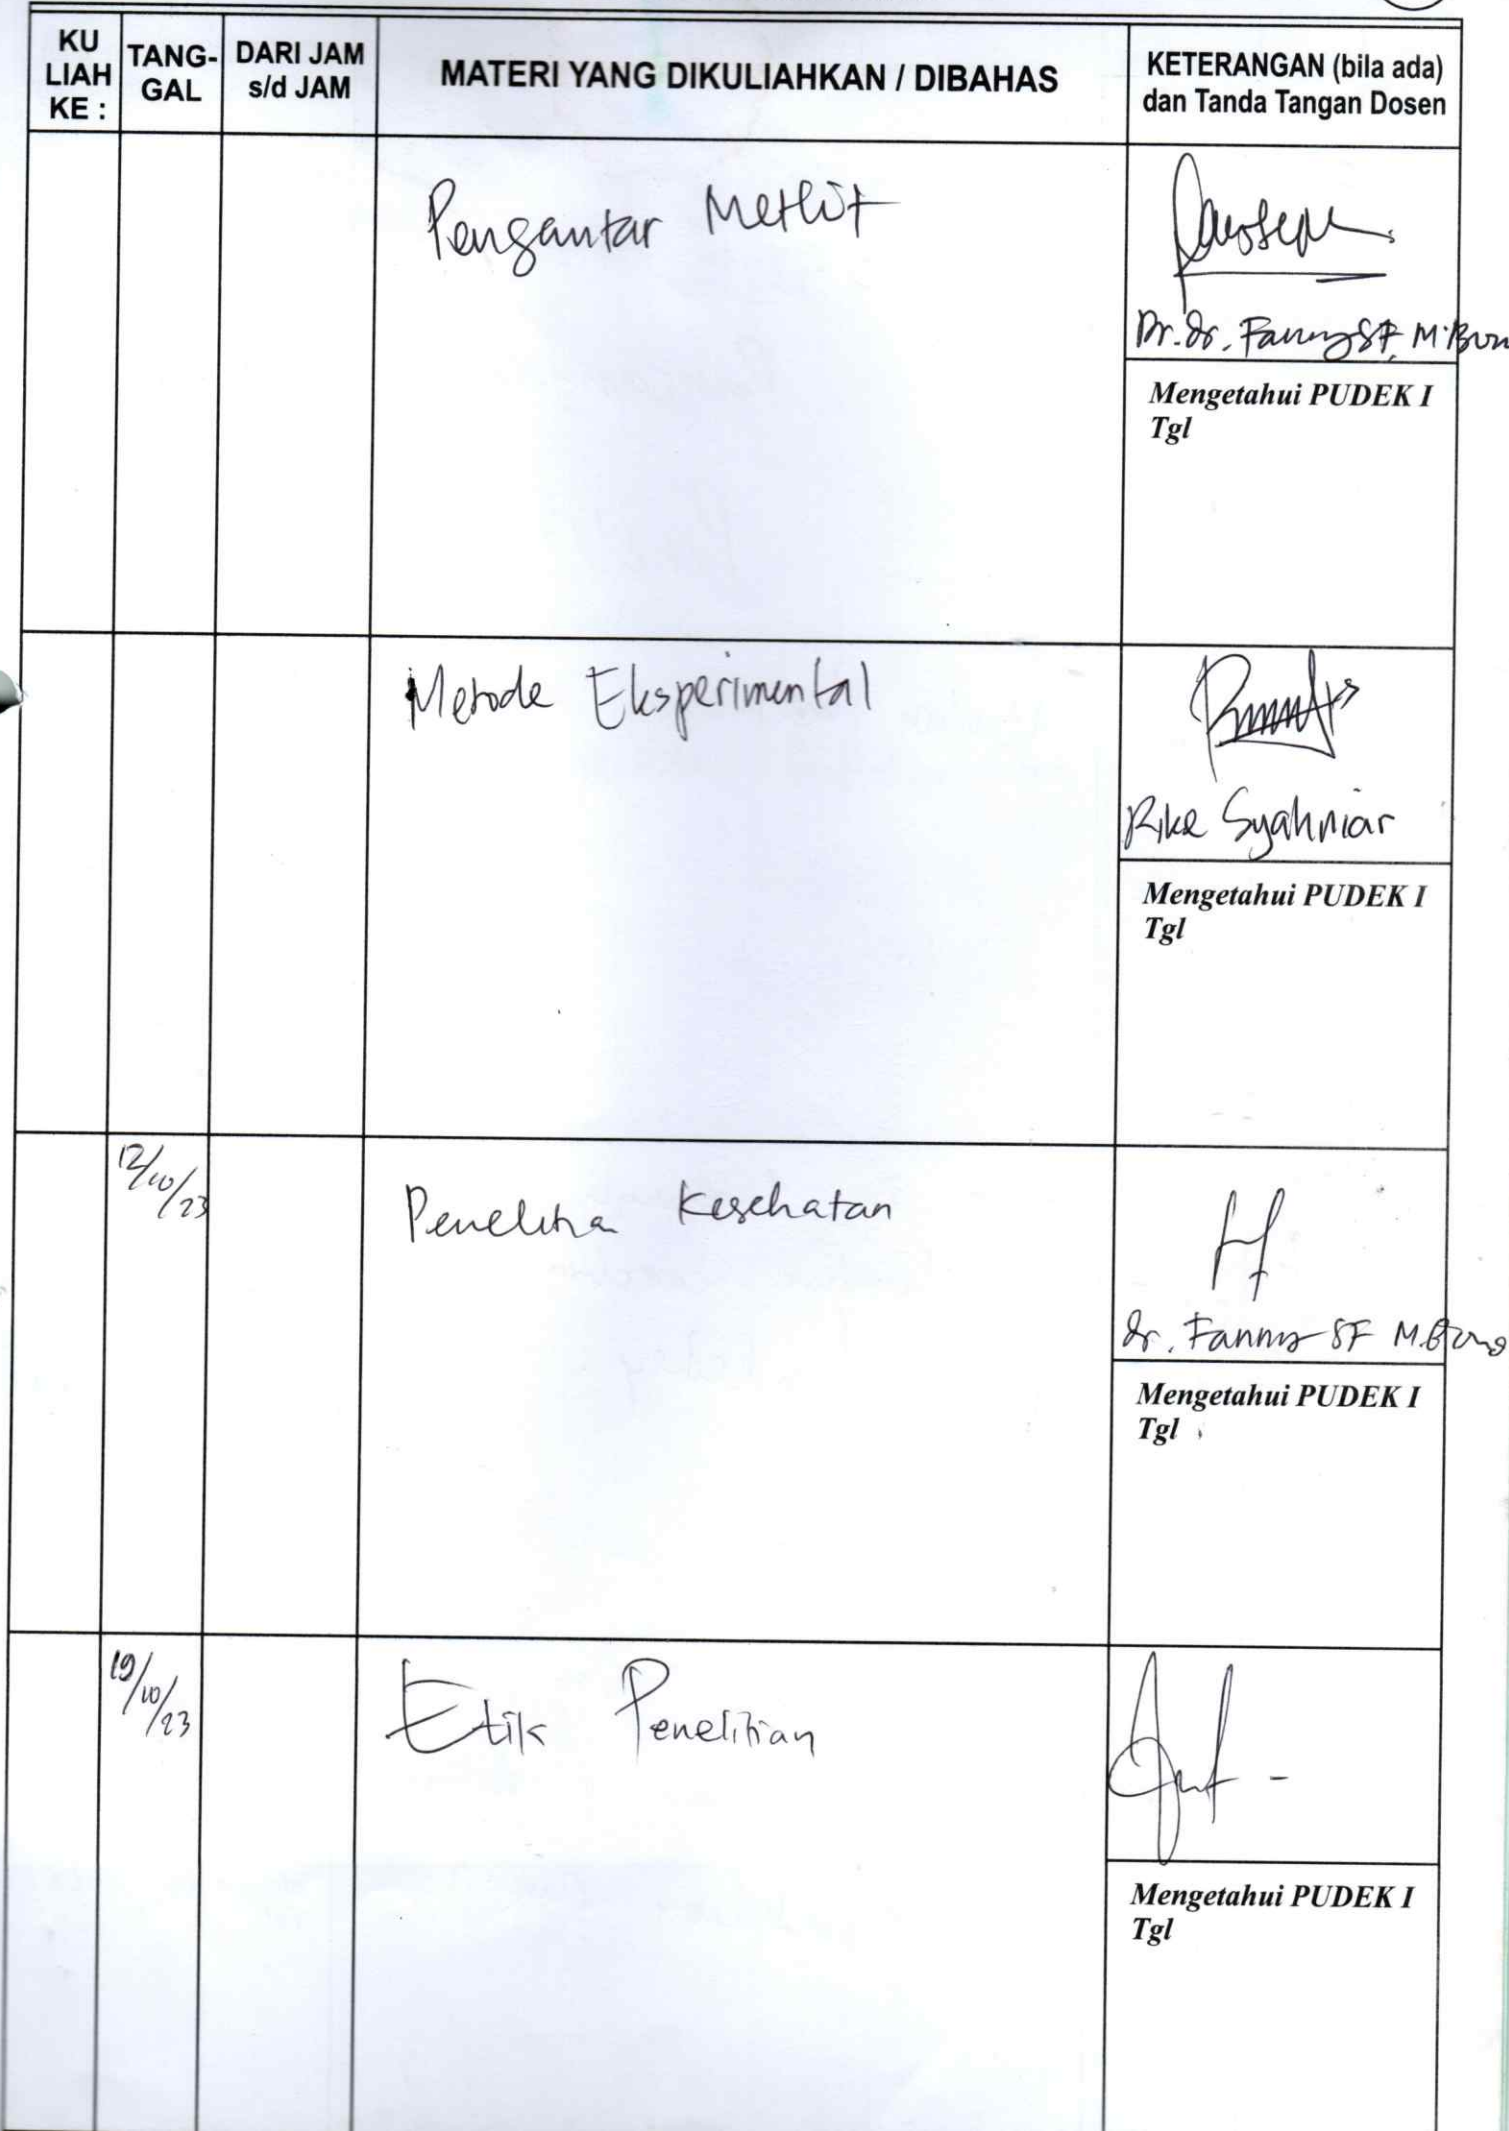 KU LIAH KE :
TANG-GAL
DARI JAM s/d JAM
MATERI YANG DIKULIAHKAN / DIBAHAS
KETERANGAN (bila ada) dan Tanda Tangan Dosen
Pengantar Metlit
Dr. dr. Fanny SF, M.
Mengetahui PUDEK I
Tgl
Metode Eksperimental
Rike Syahniar
Mengetahui PUDEK I
Tgl
12/10/23
Penelitia Kesehatan
dr. Fanny SF
Mengetahui PUDEK I
Tgl
19/10/23
Etik Penelitian
Mengetahui PUDEK I
Tgl